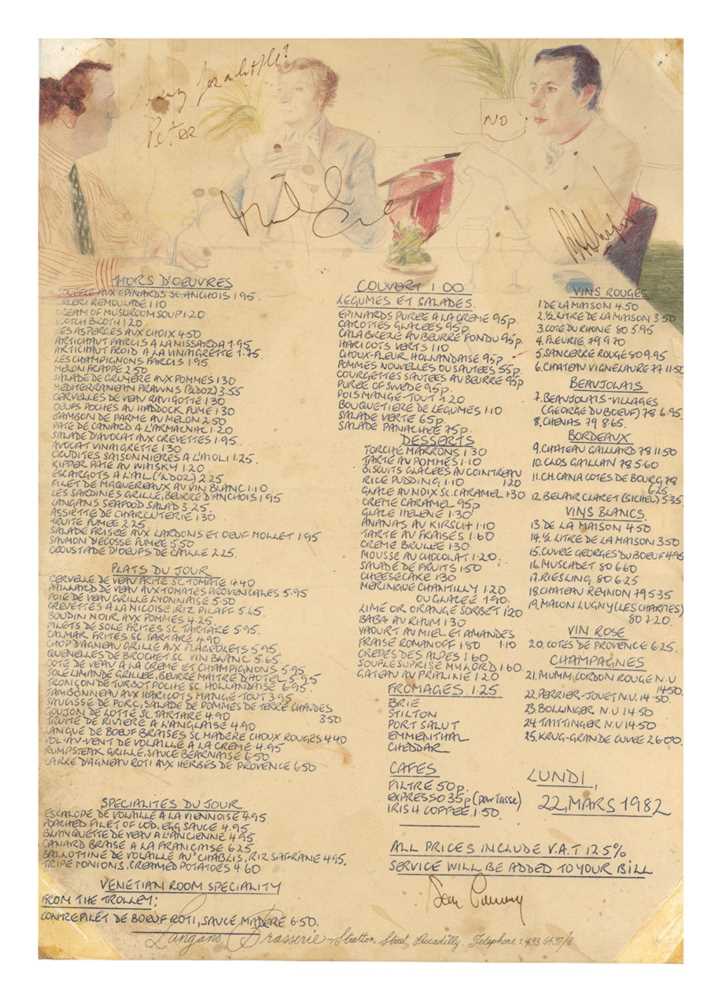 Peter
NO
HORS D'OEUVRES
SOUFFLE AUX EPINARDS SC. ANCHOIS 1.95
CELERI REMOULADE 1.10
CREAM OF MUSHROOM SOUP 1.20
SCOTCH BROTH 1.20
LES ASPERGES AUX CHOIX 4.50
ARTICHAUT FARCIS A LA NISSARDA 1.95
ARTICHAUT FROID A LA VINAIGRETTE 1.75
LES CHAMPIGNONS FARCIS 1.95
MELON FRAPPE 2.50
SALADE DE GRUYERE AUX POMMES 1.30
MEDITERRANEAN PRAWNS 3.55
CERVELLES DE VEAU RAVIGOTTE 1.30
OEUFS POCHES AU HADDOCK FUME 1.30
JAMBON DE PARME AU MELON 2.50
PATE DE CANARD A L'ARMAGNAC 1.20
SALADE D'AVOCAT AUX CREVETTES 1.95
AVOCAT VINAIGRETTE 1.30
CRUDITES SAISONNIERES A L'AIOLI 1.25
KIPPER PATE AU WHISKY 1.20
ESCARGOTS A L'AIL (½ DOZ) 2.25
FILET DE MAQUEREAUX AU VIN BLANC 1.10
LES SARDINES GRILLE, BEURRE D'ANCHOIS 1.95
LANGANS SEAFOOD SALAD 3.25
ASSIETTE DE CHARCUTERIE 1.30
TRUITE FUMEE 2.25
SALADE FRISEE AUX LARDONS ET OEUF MOLLET 1.95
SAUMON D'ECOSSE FUMEE 5.50
CROUSTADE D'OEUFS DE CAILLE 2.25
PLATS DU JOUR
CERVELLE DE VEAU FRITE SC. TOMATE 4.40
PAILLARD DE VEAU AUX TOMATES PROVENCALES 5.95
FOIE DE VEAU GRILLE LYONNAISE 5.50
CREVETTES A LA NICOISE RIZ PILAFF 5.25
BOUDIN NOIR AUX POMMES 4.25
FILETS DE SOLE FRITES SC TARTARE 5.95
CALMAR FRITES SC TARTARE 4.90
CHOP D'AGNEAU GRILLE AUX FLAGEOLETS 5.95
QUENELLES DE BROCHET SC VIN BLANC 5.65
COTE DE VEAU A LA CREME ET CHAMPIGNONS 5.95
SOLE LIMANDE GRILLEE, BEURRE MAITRE D'HOTEL 5.95
TRONÇON DE TURBOT POCHE SC HOLLANDAISE 6.95
JAMBONNEAU AUX HARICOTS MANGE-TOUT 3.95
SAUCISSE DE PORC, SALADE DE POMMES DE TERRE CHAUDES 3.50
GOUJON DE LOTTE SC TARTARE 4.90
TOURTE DE RIVIERE A L'ANGLAISE 4.90
LANGUE DE BOEUF BRAISES SC MADERE CHOUX ROUGES 4.40
VOL-AU-VENT DE VOLAILLE A LA CREME 4.95
RUMPSTEAK GRILLE, SAUCE BEARNAISE 6.50
CARRE D'AGNEAU ROTI AUX HERBES DE PROVENCE 6.50
SPECIALITES DU JOUR
ESCALOPE DE VOLAILLE A LA VIENNOISE 4.95
POACHED FILET OF COD, EGG SAUCE 4.95
BLANQUETTE DE VEAU A L'ANCIENNE 4.95
CANARD BRAISE A LA FRANÇAISE 6.25
BALLOTINE DE VOLAILLE AU CHABLIS, RIZ SAFRANE 4.95
TRIPE N'ONIONS, CREAMED POTATOES 4.60
VENETIAN ROOM SPECIALITY
FROM THE TROLLEY:
CONTREFILET DE BOEUF ROTI, SAUCE MADERE 6.50
COUVERT 1.00
LEGUMES ET SALADES
EPINARDS PUREE A LA CREME 95p
CAROTTES GLACEES 95p
CALABRESE AU BEURRE FONDU 95p
HARICOTS VERTS 1.10
CHOUX-FLEUR HOLLANDAISE 95p
POMMES NOUVELLES OU SAUTEES 55p
COURGETTES SAUTEES AU BEURRE 95p
PUREE OF SWEDE 95p
POIS MANGE-TOUT 1.20
BOUQUETIERE DE LEGUMES 1.10
SALADE VERTE 65p
SALADE PANACHEE 75p
DESSERTS
TORCHE MARRONS 1.30
TARTE AU POMMES 1.10
BISCUITS GLACEES AU COINTREAU 1.20
RICE PUDDING 1.10
GLACE AU NOIX SC. CARAMEL 1.30
CREME CARAMEL 95p
GLACE HELENE 1.30
ANANAS AU KIRSCH 1.10
TARTE AU FRAISES 1.60
CREME BRULEE 1.30
MOUSSE AU CHOCOLAT 1.20
SALADE DE FRUITS 1.50
CHEESECAKE 1.30
MERINGUE CHANTILLY 1.20
OU GLACEE 1.90
LIME OR ORANGE SORBET 1.20
BABA AU RHUM 1.30
YAOURT AU MIEL ET AMANDES 1.10
FRAISE ROMANOFF 1.80
CREPES DES ALPES 1.60
SOUFFLE SUPRISE MILORD 1.60
GATEAU AU PRALINE 1.20
FROMAGES 1.25
BRIE
STILTON
PORT SALUT
EMMENTHAL
CHEDDAR
CAFES
FILTRE 50p
EXPRESSO 35p (par tasse)
IRISH COFFEE 1.50
VINS ROUGES
1. DE LA MAISON 4.50
2. ½ LITRE DE LA MAISON 3.50
3. COTE DU RHONE 80 5.95
4. FLEURIE 79 9.70
5. SANCERRE ROUGE 80 9.95
6. CHATEAU VIGNELAURE 77 11.50
BEAUJOLAIS
7. BEAUJOLAIS-VILLAGES
(GEORGE DU BOEUF) 78 6.95
8. CHENAS 79 8.65
BORDEAUX
9. CHATEAU GAILLARD 78 11.50
10. CLOS GAILLAN 78 5.60
11. CH. CANA COTES DE BOURG 78 6.25
12. BELAIR CLARET (SICHEL) 5.35
VINS BLANCS
13 DE LA MAISON 4.50
14. ½ LITRE DE LA MAISON 3.50
15. CUVEE GEORGES DU BOEUF 4.95
16. MUSCADET 80 6.60
17. RIESLING 80 6.25
18. CHATEAU REYNON 79 5.35
19. MACON LUGNY (LES CHARMES)
80 7.20
VIN ROSE
20. COTES DE PROVENCE 6.25
CHAMPAGNES
21. MUMM, CORDON ROUGE N.V 14.50
22. PERRIER-JOUET N.V. 14.50
23 BOLLINGER N.V 14.50
24. TAITTINGER N.V 14.50
25. KRUG-GRANDE CUVEE 26.00
LUNDI,
22, MARS 1982
ALL PRICES INCLUDE V.A.T 12.5%
SERVICE WILL BE ADDED TO YOUR BILL
Langan's Brasserie - Stratton Street, Piccadilly. Telephone: 493